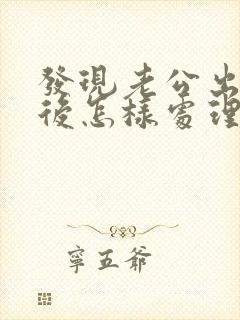 發現老公出
後怎樣處理
寧五爺